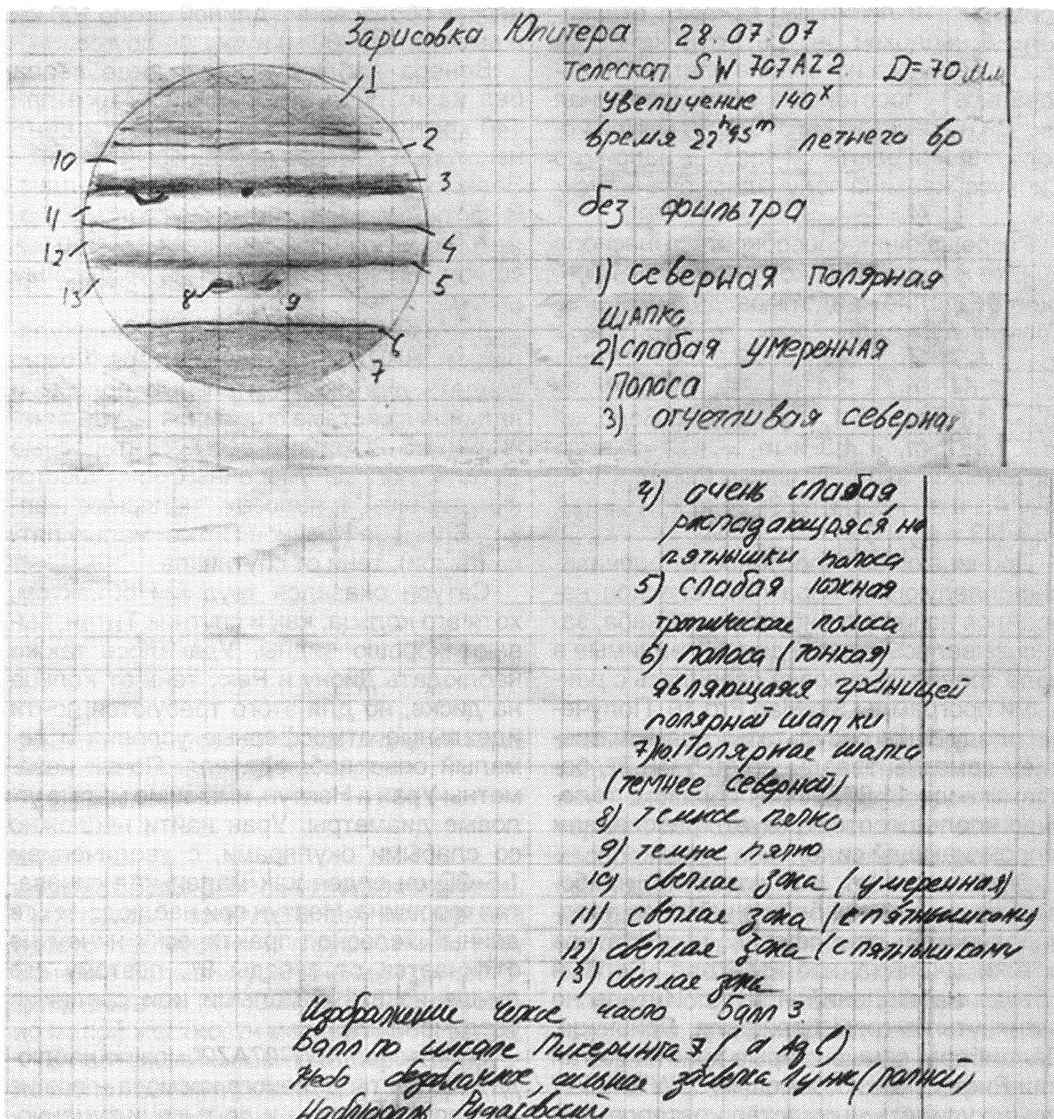 Зарисовка Юпитера 28.07.07
Телескоп SW 707AZ2 D=70мм
Увеличение 140x
Время 22h45m летнего вр
без фильтра
1
2
3
4
5
6
7
8
9
10
11
12
13
1) северная полярная
шапка
2) слабая умеренная
полоса
3) отчетливая северная
4) очень слабая
распадающаяся на
пятнышки полоса
5) слабая южная
тропическая полоса
6) полоса (тонкая)
являющаяся границей
полярной шапки
7) Полярная шапка
темнее северной
8) Темное пятно
9) темное пятно
10) светлая зона (умеренная)
11) светлая зона (с пятнышками)
12) светлая зона (с пятнышками
13) светлая зона
Изображение часто Балл 3
Балл по шкале Пикеринга 7
Небо безоблачное, сильная засветка
Наблюдал